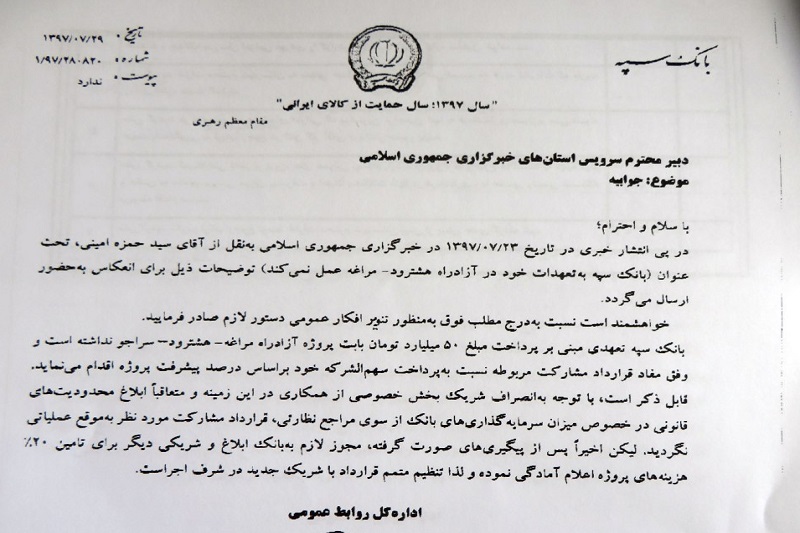 بانک سپه
تاریخ: ۱۳۹۷/۰۷/۲۹
شماره: ۱/۹۷/۲۸۰۸۲۰
پیوست: ندارد
"سال ۱۳۹۷؛ سال حمایت از کالای ایرانی"
مقام معظم رهبری
دبیر محترم سرویس استان‌های خبرگزاری جمهوری اسلامی
موضوع: جوابیه
با سلام و احترام؛
در پی انتشار خبری در تاریخ ۱۳۹۷/۰۷/۲۳ در خبرگزاری جمهوری اسلامی به‌نقل از آقای سید حمزه امینی، تحت
عنوان (بانک سپه به‌تعهدات خود در آزادراه هشترود- مراغه عمل نمی‌کند) توضیحات ذیل برای انعکاس به‌حضور
ارسال می‌گردد.
خواهشمند است نسبت به‌درج مطلب فوق به‌منظور تنویر افکار عمومی دستور لازم صادر فرمایید.
بانک سپه تعهدی مبنی بر پرداخت مبلغ ۵۰ میلیارد تومان بابت پروژه آزادراه مراغه- هشترود- سراجو نداشته است و
وفق مفاد قرارداد مشارکت مربوطه نسبت به‌پرداخت سهم‌الشرکه خود براساس درصد پیشرفت پروژه اقدام می‌نماید.
قابل ذکر است، با توجه به‌انصراف شریک بخش خصوصی از همکاری در این زمینه و متعاقباً ابلاغ محدودیت‌های
قانونی در خصوص میزان سرمایه‌گذاری‌های بانک از سوی مراجع نظارتی، قرارداد مشارکت مورد نظر به‌موقع عملیاتی
نگردید. لیکن اخیراً پس از پیگیری‌های صورت گرفته، مجوز لازم به‌بانک ابلاغ و شریکی دیگر برای تامین ۲۰٪
هزینه‌های پروژه اعلام آمادگی نموده و لذا تنظیم متمم قرارداد با شریک جدید در شرف اجراست.
اداره‌کل روابط عمومی